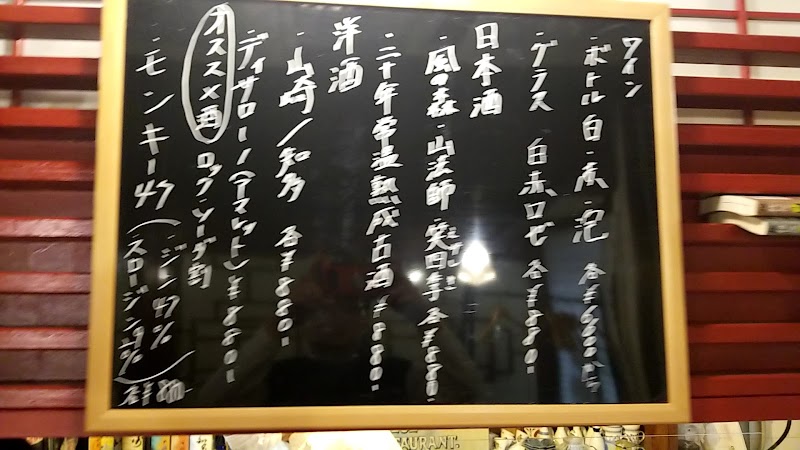 ワイン
・ボトル 白・赤・泡 各¥6600から
・グラス 白赤ロゼ 各¥880-
日本酒
・風の森・山法師・笑四季 各¥880-
・二十年常温熟成古酒 ¥880-
洋酒
・山崎/知多 各¥880-
・ディサローノ(アマレット) ¥880-
オススメ酒 ロック・ソーダ割
・モンキー47(・ジン47%
・スロージン29%)各¥880
RESTAURANT.